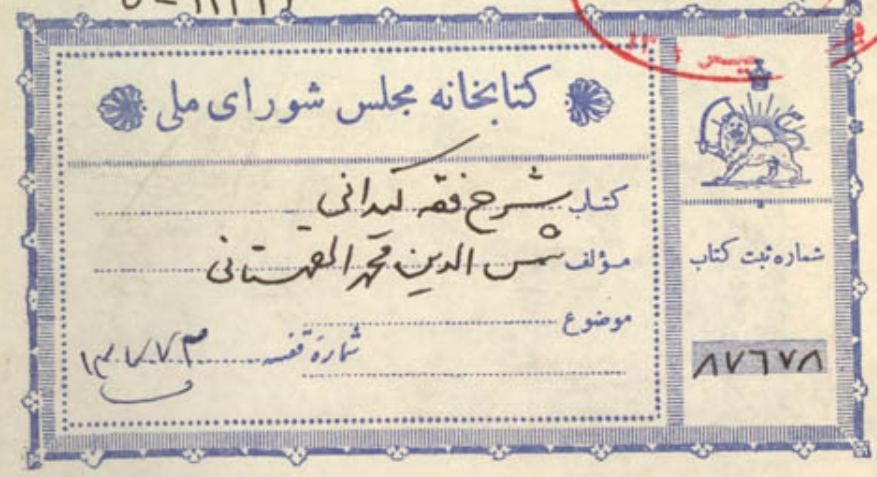 کتابخانه مجلس شورای ملی
کتاب شرح فقه کیدانی
مؤلف شمس الدین محمد القهستانی
موضوع
شمارهٔ قفسه ۱۳۷۷۳
شماره ثبت کتاب
۸۷۶۷۸